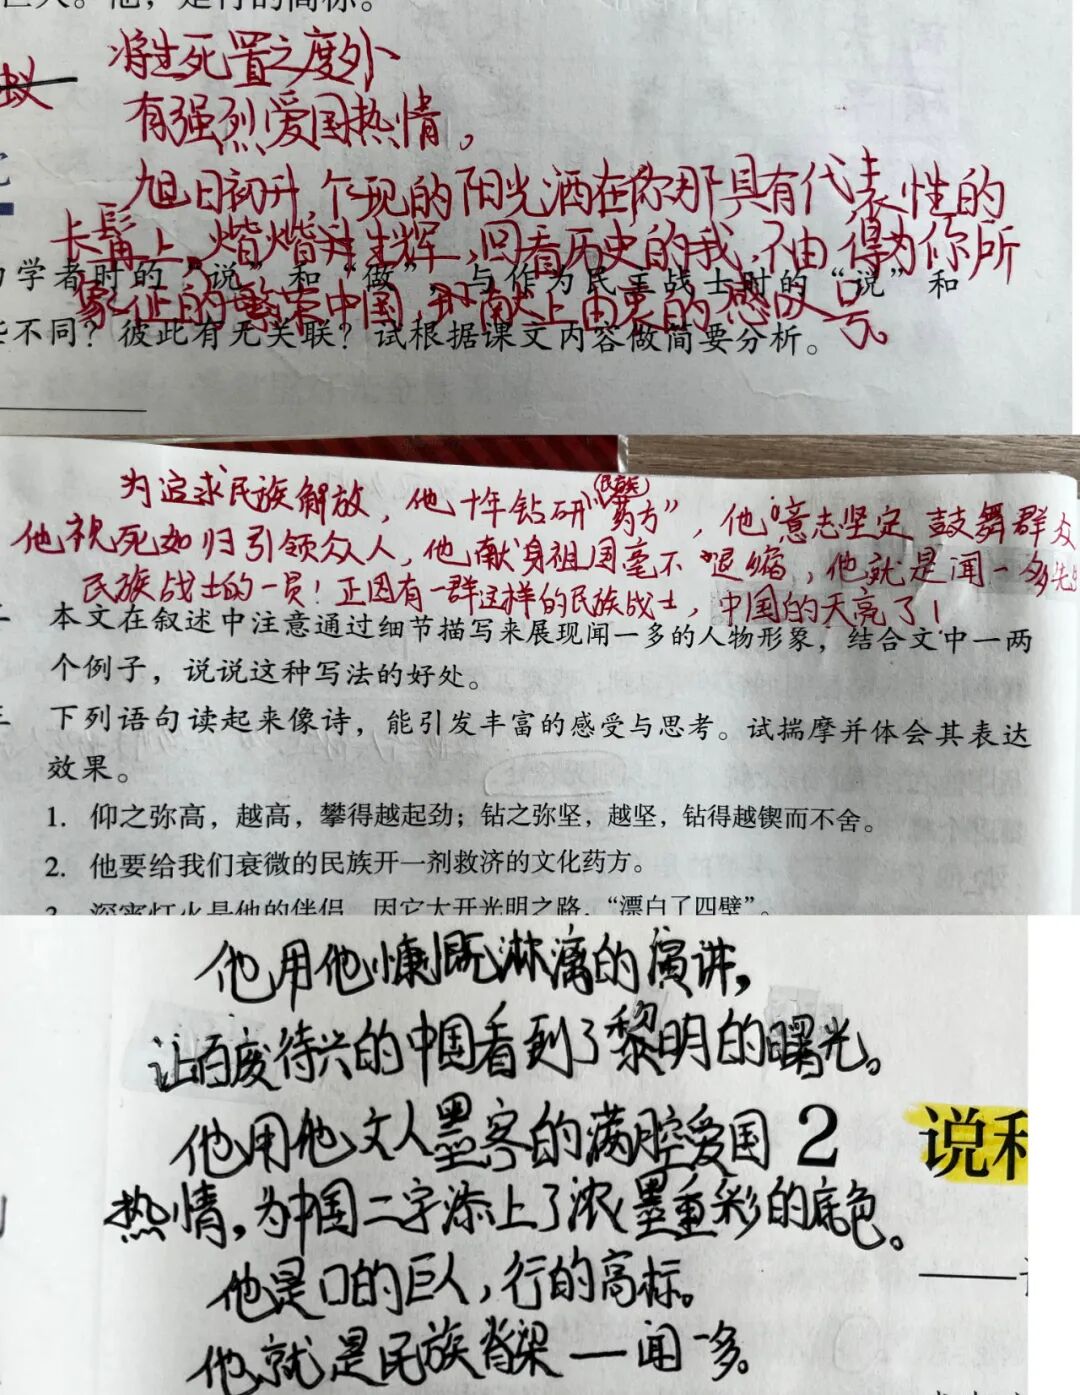 巨人。他，是行的高标。
将生死置之度外
蚁
有强烈爱国热情。
旭日初升 乍现的阳光洒在你那具有代表性的
卡髯上，熠熠生辉，回看历史的我，不由得为你所
学者时的“说”和“做”，与作为民主战士时的“说”和
象征的繁荣中国，献上由衷的感叹号。
些不同？彼此有无关联？试根据课文内容做简要分析。
为追求民族解放，他十年钻研“(民族)药方”，他“意志坚定 鼓舞群众
他视死如归引领众人，他献身祖国毫不退缩，他就是闻一多先生
民族战士的一员！正因有一群这样的民族战士，中国的天亮了！
二 本文在叙述中注意通过细节描写来展现闻一多的人物形象，结合文中一两
个例子，说说这种写法的好处。
三 下列语句读起来像诗，能引发丰富的感受与思考。试揣摩并体会其表达
效果。
1. 仰之弥高，越高，攀得越起劲；钻之弥坚，越坚，钻得越锲而不舍。
2. 他要给我们衰微的民族开一剂救济的文化药方。
3 深宵灯火是他的伴侣，因它大开光明之路，“漂白了四壁”。
他用他慷慨淋漓的演讲，
让百废待兴的中国看到了黎明的曙光。
他用他文人墨客的满腔爱国
2 说和
热情，为中国二字添上了浓墨重彩的底色。
他是口的巨人，行的高标。
他就是民族脊梁——闻一多。